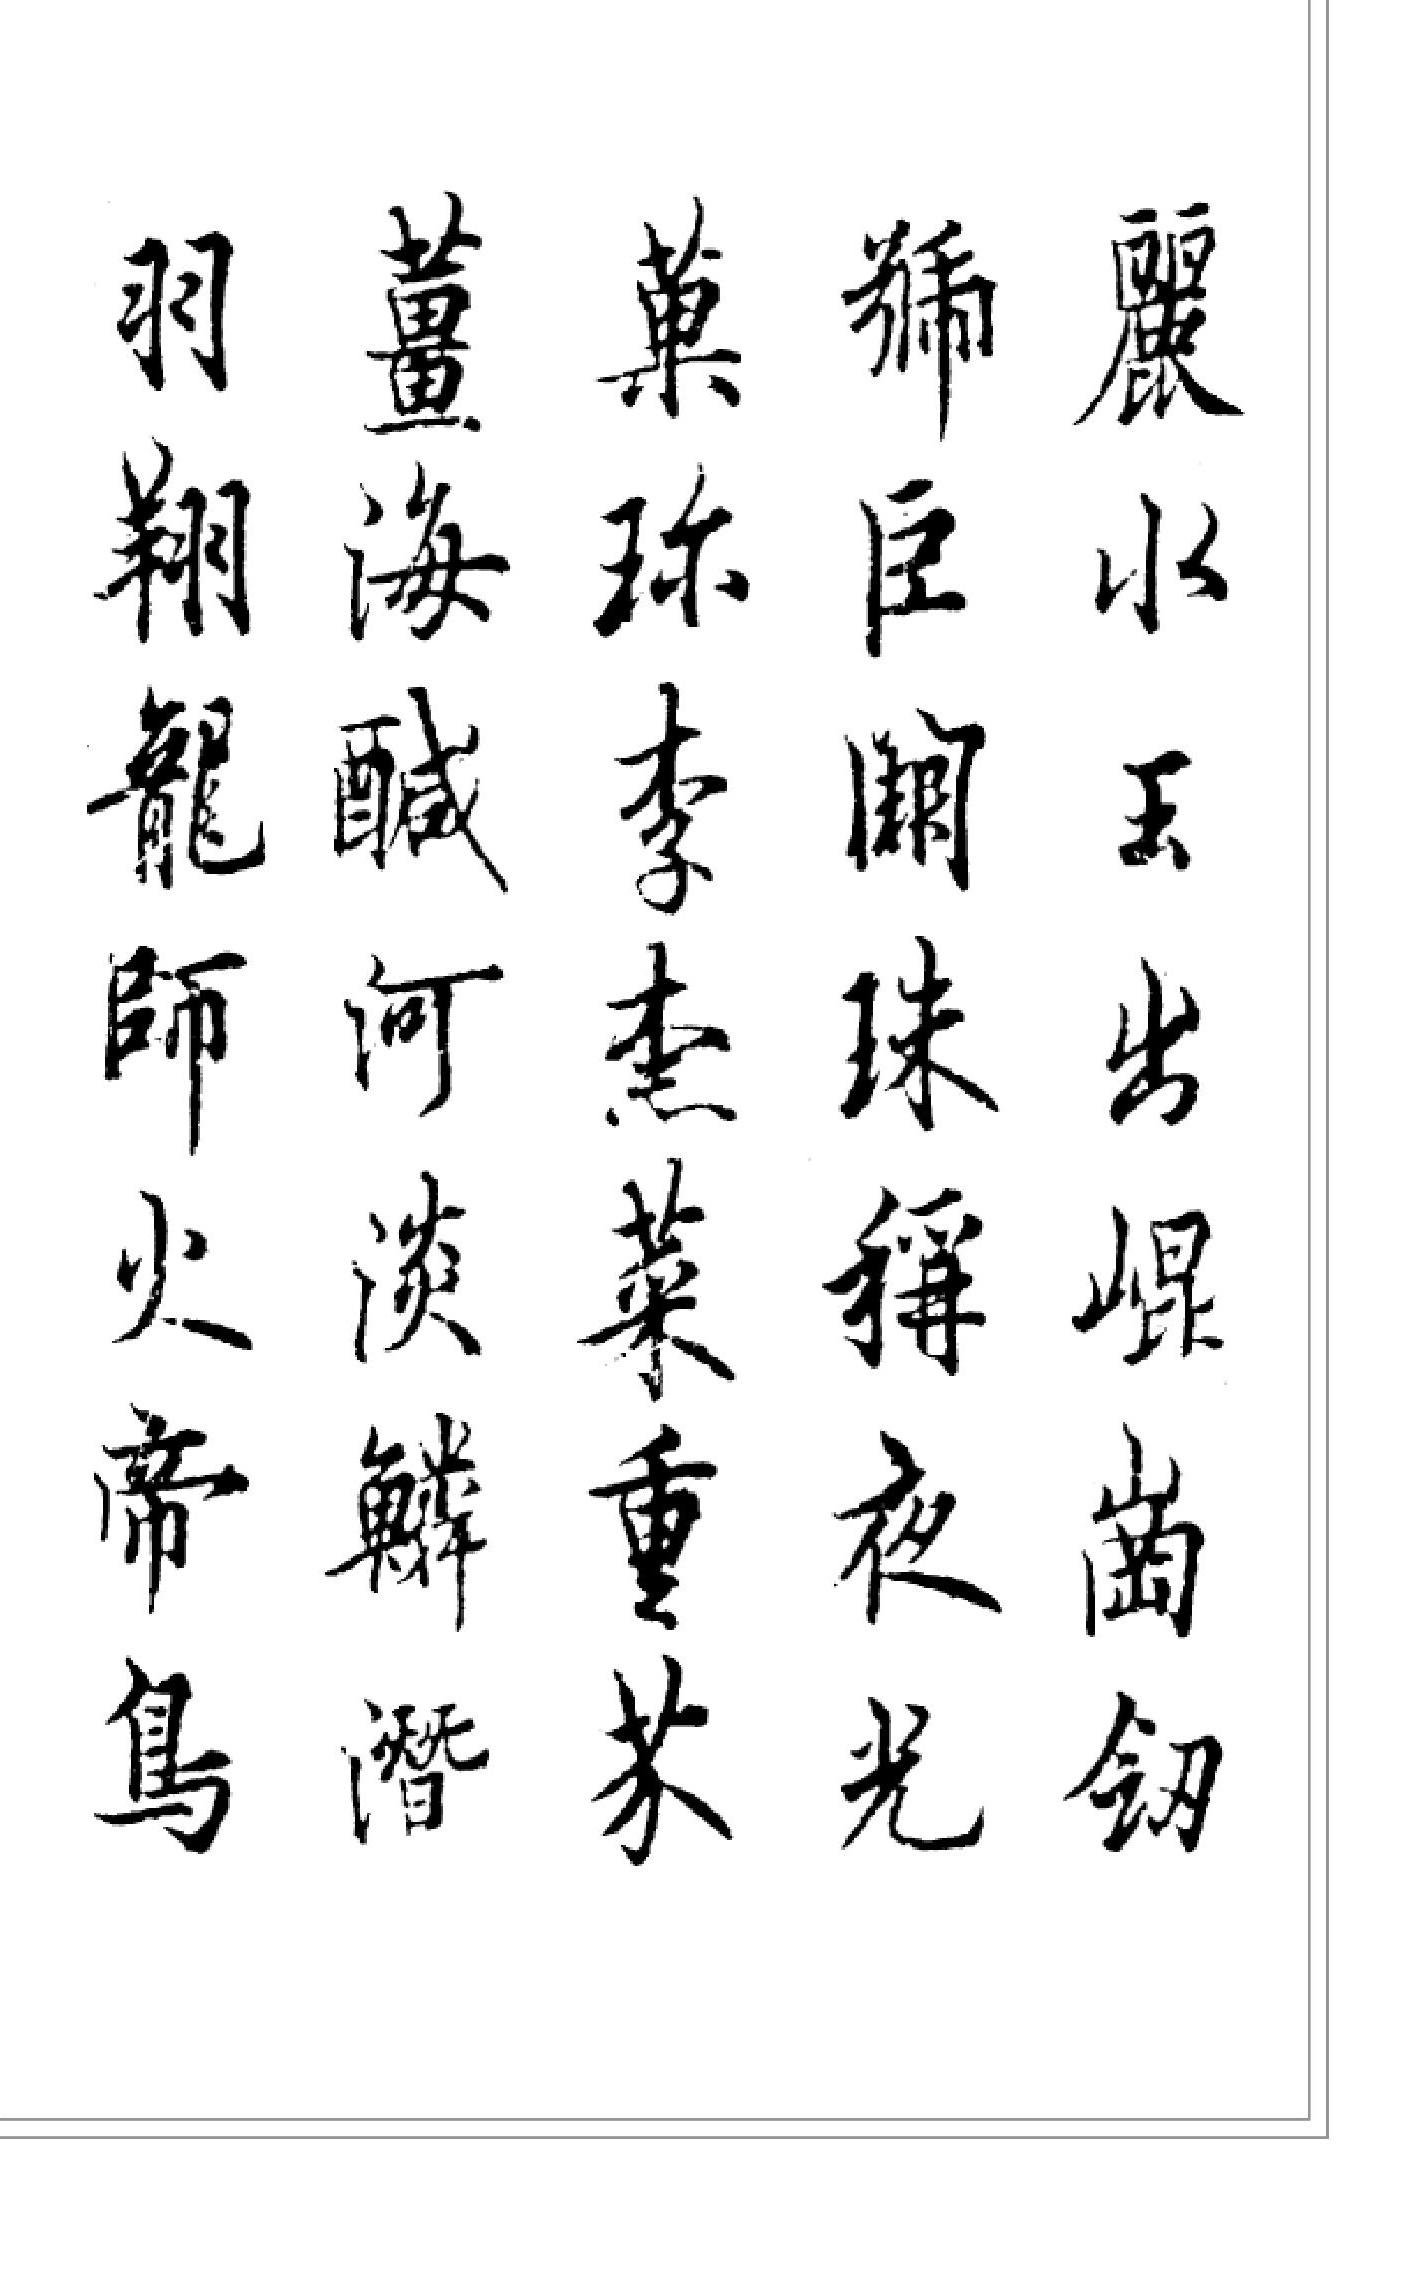 麗水玉出崐崗劒
號巨闕珠稱夜光
菓珍李柰菜重芥
薑海鹹河淡鱗潛
羽翔龍師火帝鳥